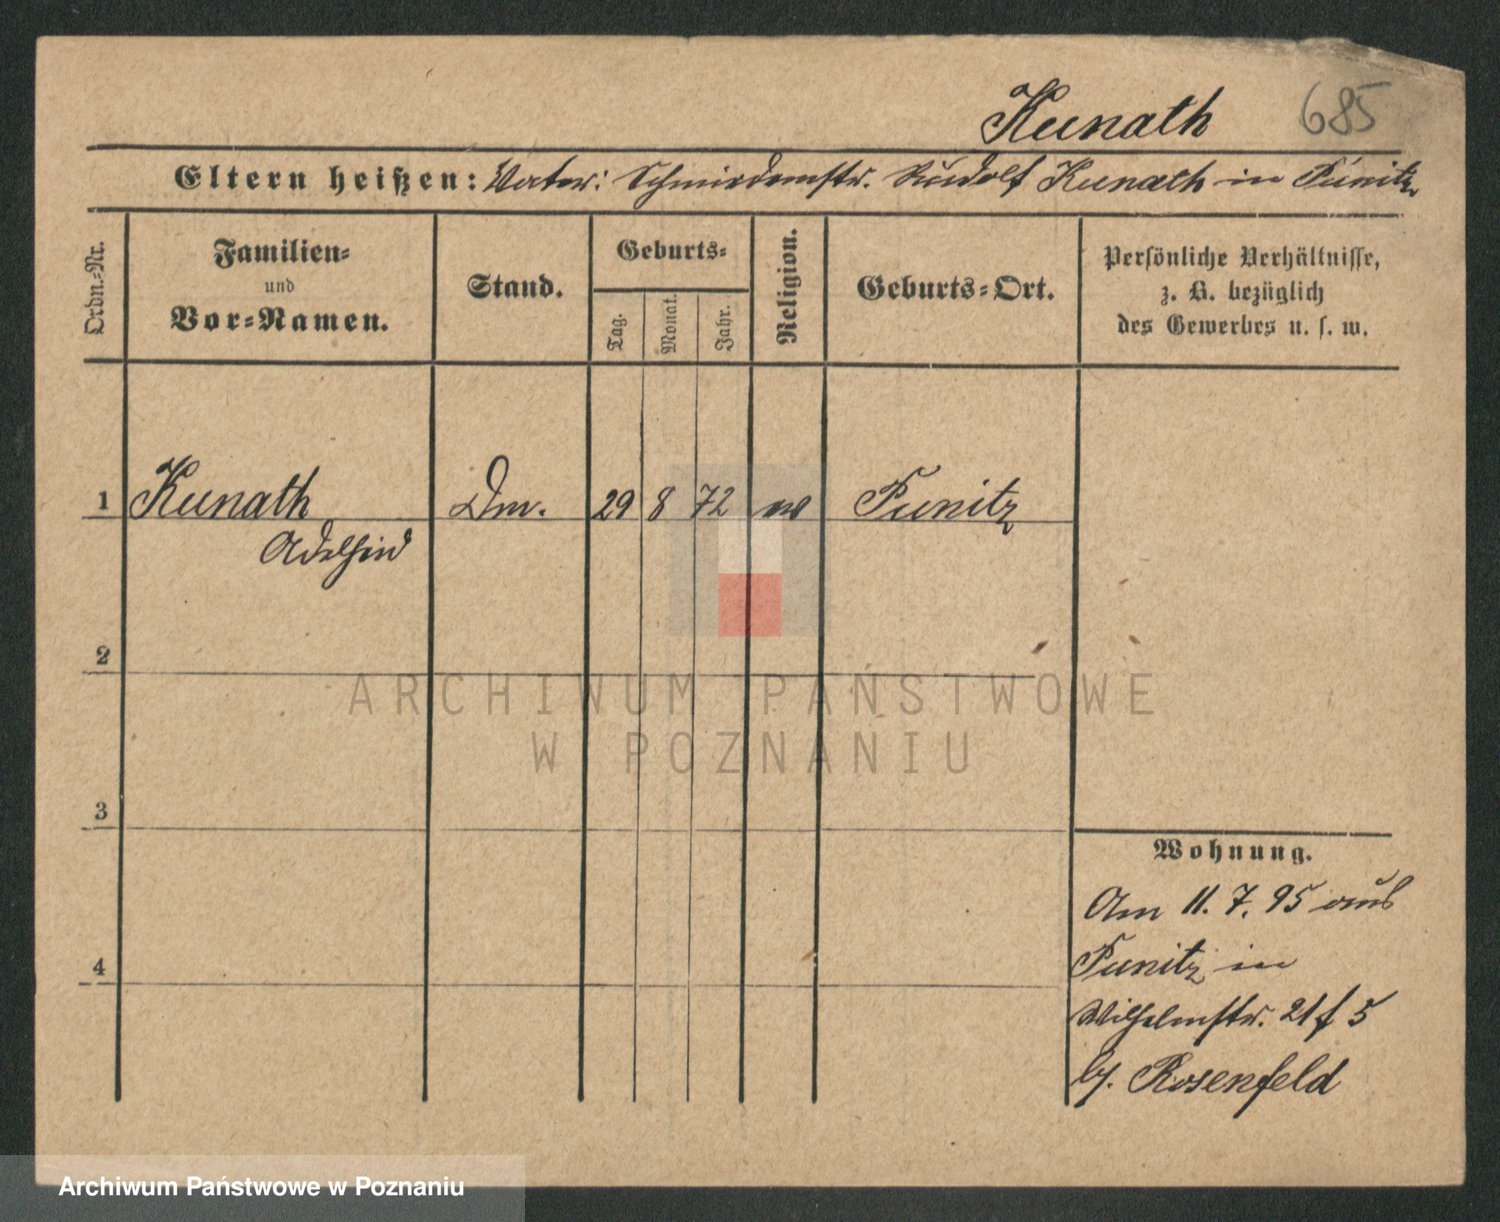 Kunath 685
Eltern heißen: Vater: Schmiedemstr. Rudolf Kunath in Punitz
Ordn.-Nr.
Familien-
und
Vor-Namen.
Stand.
Geburts-
Tag.
Monat.
Jahr.
Religion.
Geburts-Ort.
Persönliche Verhältnisse,
z. B. bezüglich
des Gewerbes u. s. w.
1 Kunath 29 8 72 Punitz
2
3
4
Wohnung.
Am 11. 7. 95 aus
Punitz in
Wilhelmstr. 21 f 5
b/. Rosenfeld
ARCHIWUM PAŃSTWOWE
W POZNANIU
Archiwum Państwowe w Poznaniu